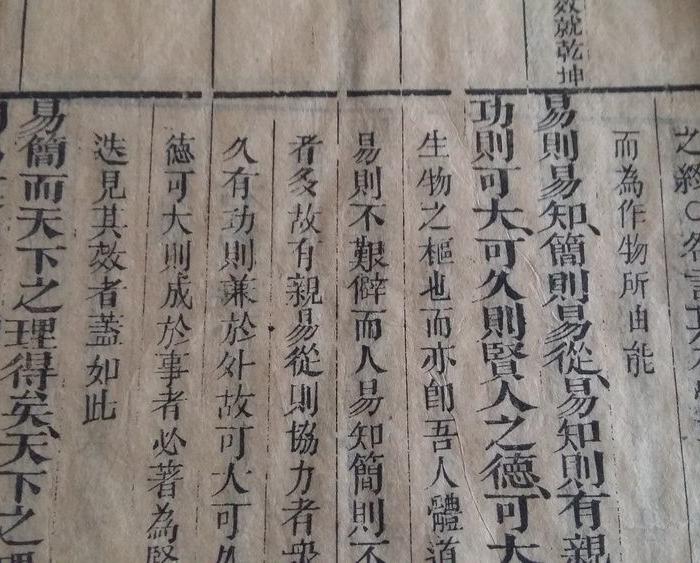 效就乾坤
而為作物所由能
易則易知、簡則易從、易知則有親
功則可大、可久則賢人之德、可大
生物之樞也而亦即吾人體道
易則不艱僻而人易知簡則不
者多故有親易從則協力者衆
久有功則兼於外故可大可久
德可大則成於事者必著為賢
迭見其效者蓋如此
易簡而天下之理得矣、天下之理